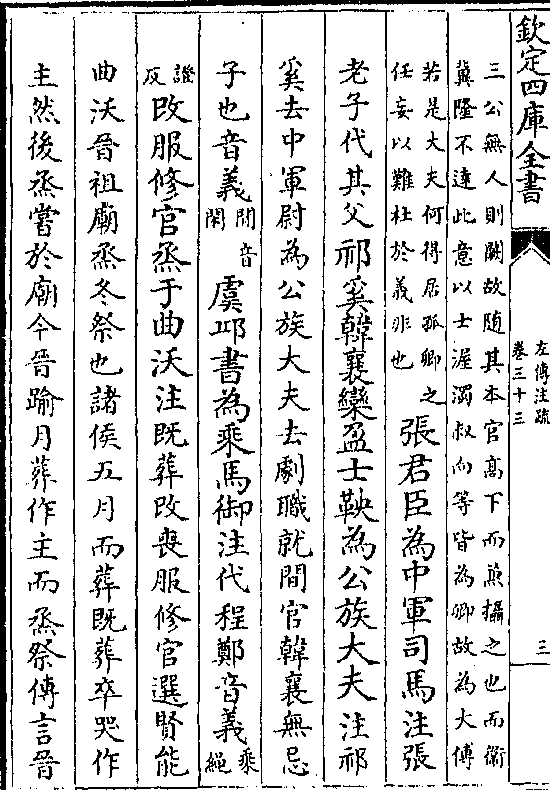 欽定四庫全書
左傳注疏
卷三十三
三
三公無人則闕故随其本官高下而兼攝之也而衛
冀隆不達此意以士渥濁叔向等皆為卿故為大傅
若是大夫何得居孤卿之
任妄以難杜於義非也
張君臣為中軍司馬注張
老子代其父祁奚韓襄欒盈士鞅為公族大夫注祁
奚去中軍尉為公族大夫去劇職就間官韓襄無忌
子也音義
間音
閑
虞邱書為乘馬御注代程鄭音義
乘
繩
證
反
改服修官烝于曲沃注既葬改喪服修官選賢能
曲沃晉祖廟烝冬祭也諸侯五月而葬既葬卒哭作
主然後烝嘗於廟今晉踰月葬作主而烝祭傳言晉